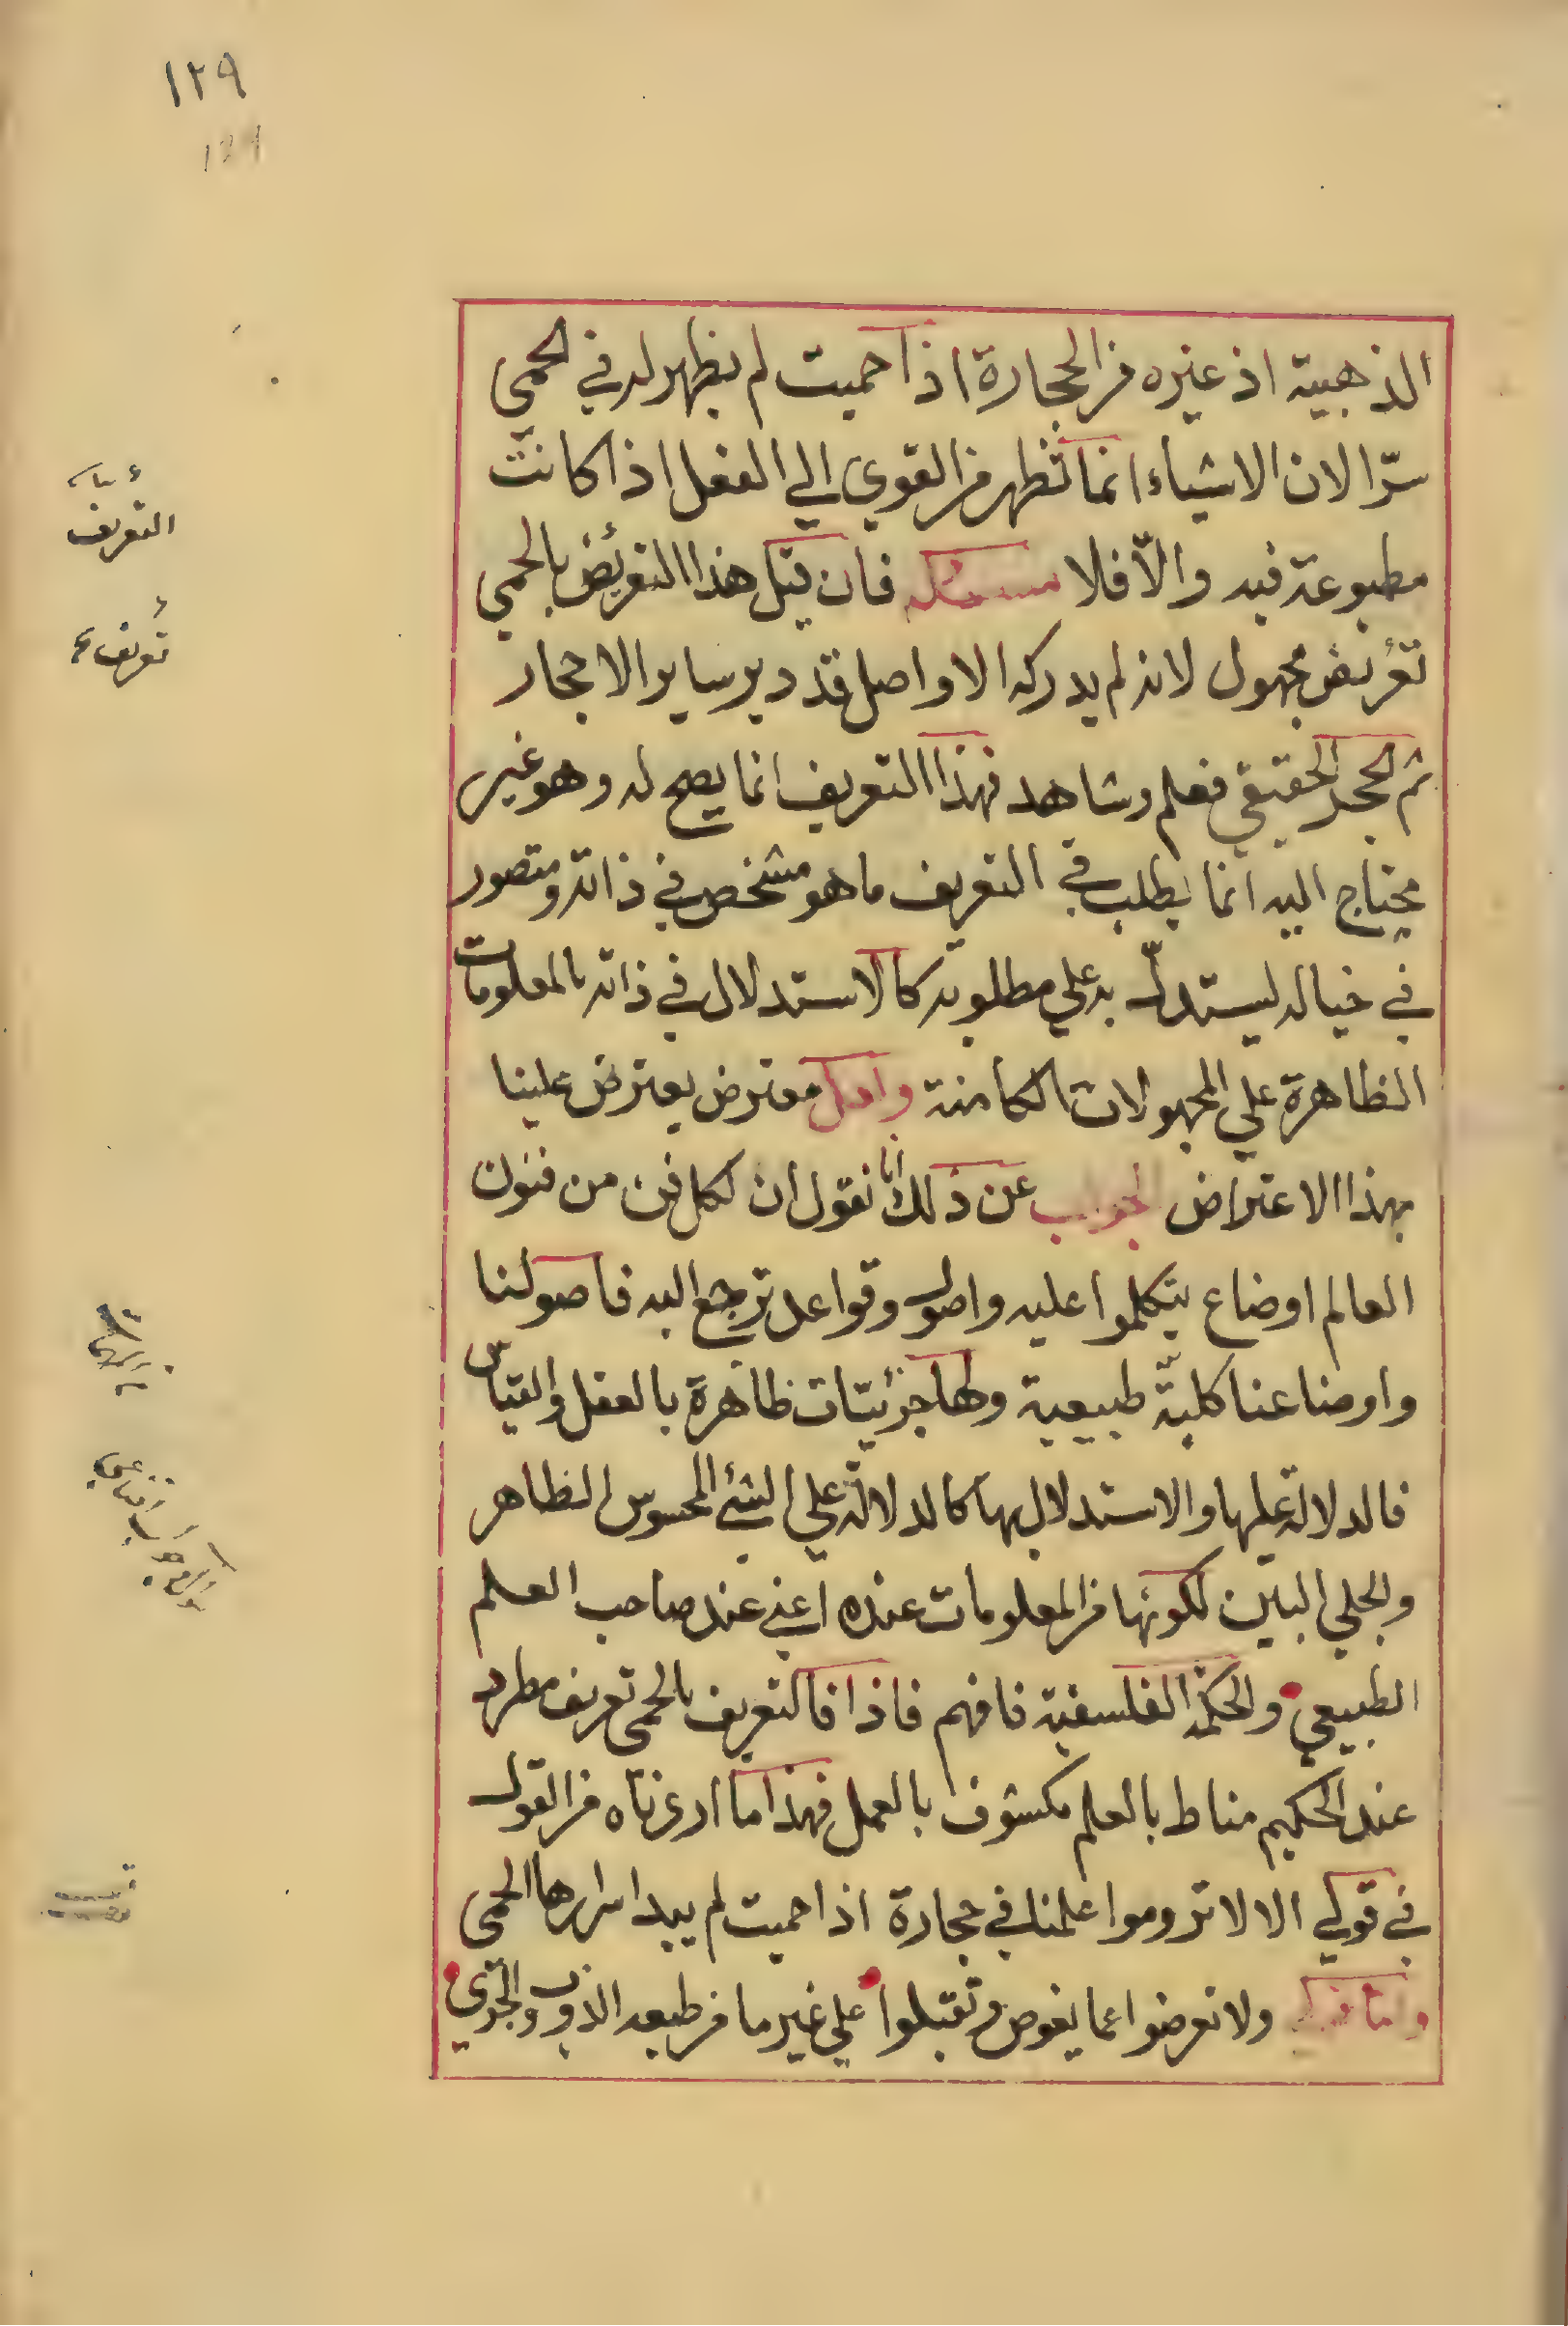 ١٢٩
الذهبية اذ غيره من الحجارة اذا حميت لم يظهر له في الحمى
سرّا لان الاشياء انما تظهر من القوي الي الفعل اذا كانت
مطبوعة فيه والاّ فلا مسئلة فان قيل هذا التعريض بالحمي
تعريض مجهول لانه لم يدركه الا واصل قد دبر ساير الاحجار
ثم الحجر الحقيقي فعلم وشاهد فهذا التعريف انما يصح له وهو غير
محتاج اليه انما يطلب في التعريف ما هو مشخص في ذاته ومتصور
في خياله ليستدلّ به علي مطلوبه كالاستدلال في ذاته بالمعلومات
الظاهرة علي المجهولات الكامنة معترض يعترض علينا
بهذا الاعتراض الجواب عن ذلك انا نقول ان لكل فن من فنون
العالم اوضاع يتكلموا عليه واصول وقواعد ترجع اليه فاصولنا
واوضاعنا كليّة طبيعية ولها جزئيّات ظاهرة بالعقل والقياس
فالدلالة عليها والاستدلال بها كالدلالة علي الشئ المحسوس الظاهر
والجلي البين لكونها من المعلومات عنده اعني عند صاحب العلم
الطبيعي والحكمة الفلسفية فافهم فاذا فالتعريف بالحمى تعريف مطرد
عند الحكيم مناط بالعلم مكشوف بالعمل فهذا ما اردناه من القول
في قولي الا لا تروموا علمنا في حجارة اذا حميت لم يبد اسرارها الحمى
ولا تعرضوا عما يغوص وتقبلوا علي غير ما من طبعه الذوب والجري
التعريف
تعريف